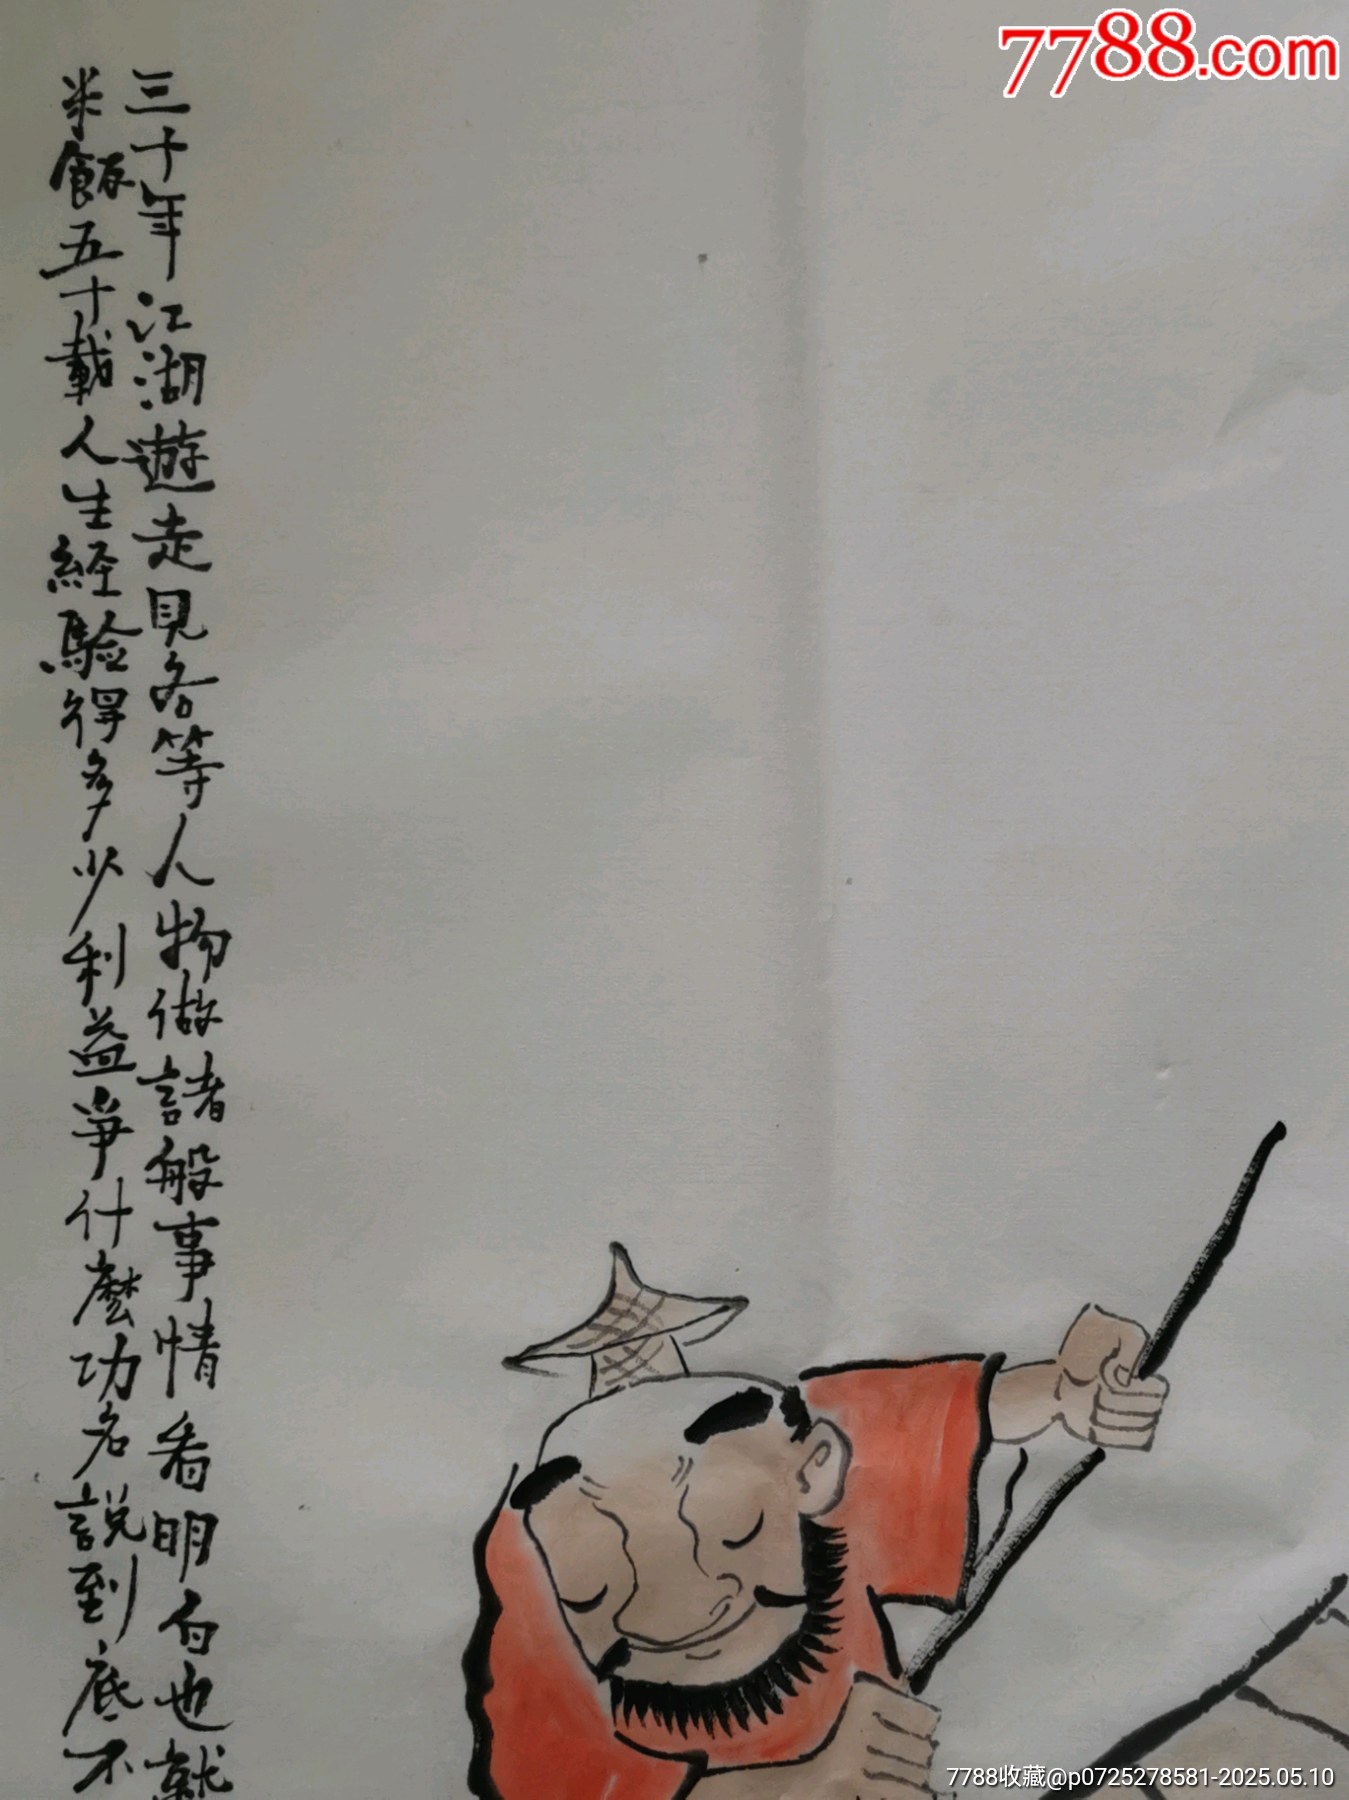 7788.com
三十年江湖遊走見各等人物做諸般事情看明白也就
米飯五十載人生經驗得多少利益爭什麼功名説到底不
7788收藏@p0725278581-2025.05.10